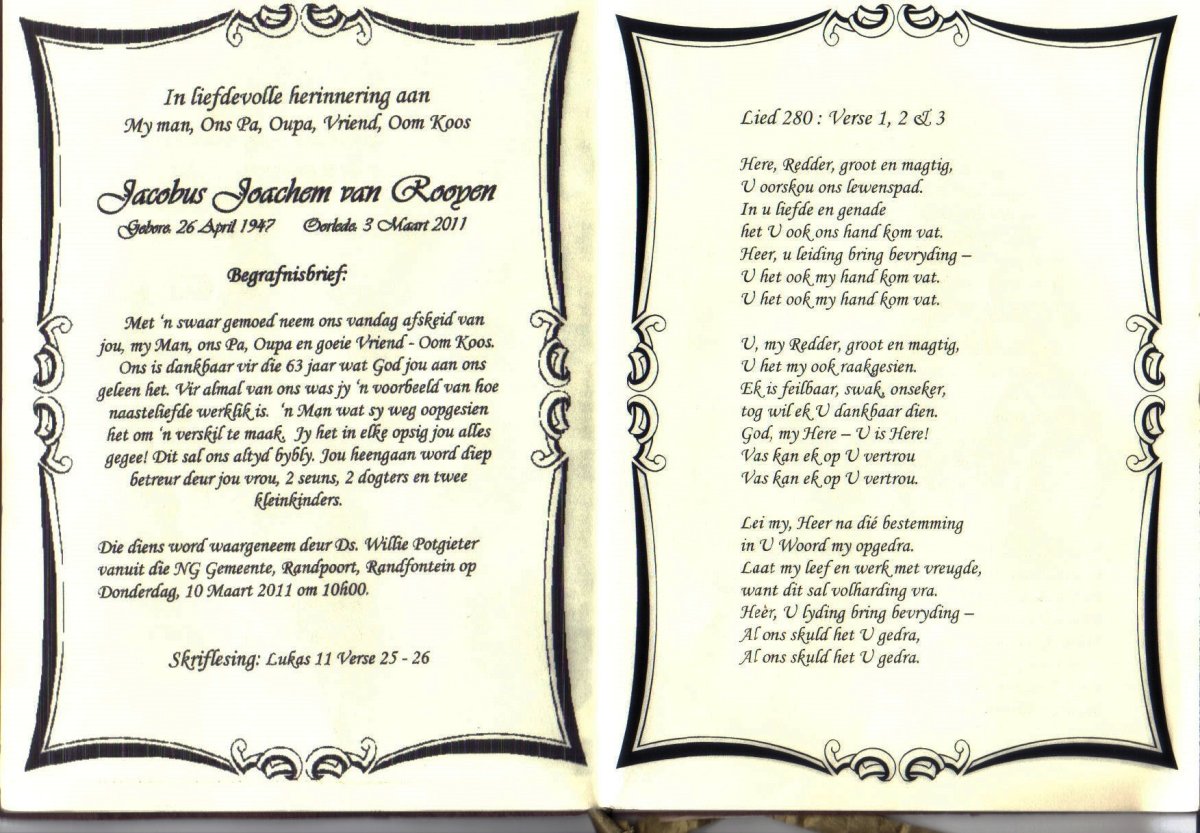 In liefdevolle herinnering aan
My man, Ons Pa, Oupa, Vriend, Oom Koos
Jacobus Joachem van Rooyen
Gebore. 26 April 1947 Oorlede. 3 Maart 2011
Begrafnisbrief:
Met 'n swaar gemoed neem ons vandag afskeid van
jou, my Man, ons Pa, Oupa en goeie Vriend - Oom Koos.
Ons is dankbaar vir die 63 jaar wat God jou aan ons
geleen het. Vir almal van ons was jy 'n voorbeeld van hoe
naasteliefde werklik is. 'n Man wat sy weg oopgesien
het om 'n verskil te maak. Jy het in elke opsig jou alles
gegee! Dit sal ons altyd bybly. Jou heengaan word diep
betreur deur jou vrou, 2 seuns, 2 dogters en twee
kleinkinders.
Die diens word waargeneem deur Ds. Willie Potgieter
vanuit die NG Gemeente, Randpoort, Randfontein op
Donderdag, 10 Maart 2011 om 10h00.
Skriflesing: Lukas 11 Verse 25 - 26
Lied 280 : Verse 1, 2 & 3
Here, Redder, groot en magtig,
U oorskou ons lewenspad.
In u liefde en genade
het U ook ons hand kom vat.
Heer, u leiding bring bevryding –
U het ook my hand kom vat.
U het ook my hand kom vat.
U, my Redder, groot en magtig,
U het my ook raakgesien.
Ek is feilbaar, swak, onseker,
tog wil ek U dankbaar dien.
God, my Here – U is Here!
Vas kan ek op U vertrou
Vas kan ek op U vertrou.
Lei my, Heer na dié bestemming
in U Woord my opgedra.
Laat my leef en werk met vreugde,
want dit sal volharding vra.
Heèr, U lyding bring bevryding –
Al ons skuld het U gedra,
Al ons skuld het U gedra.